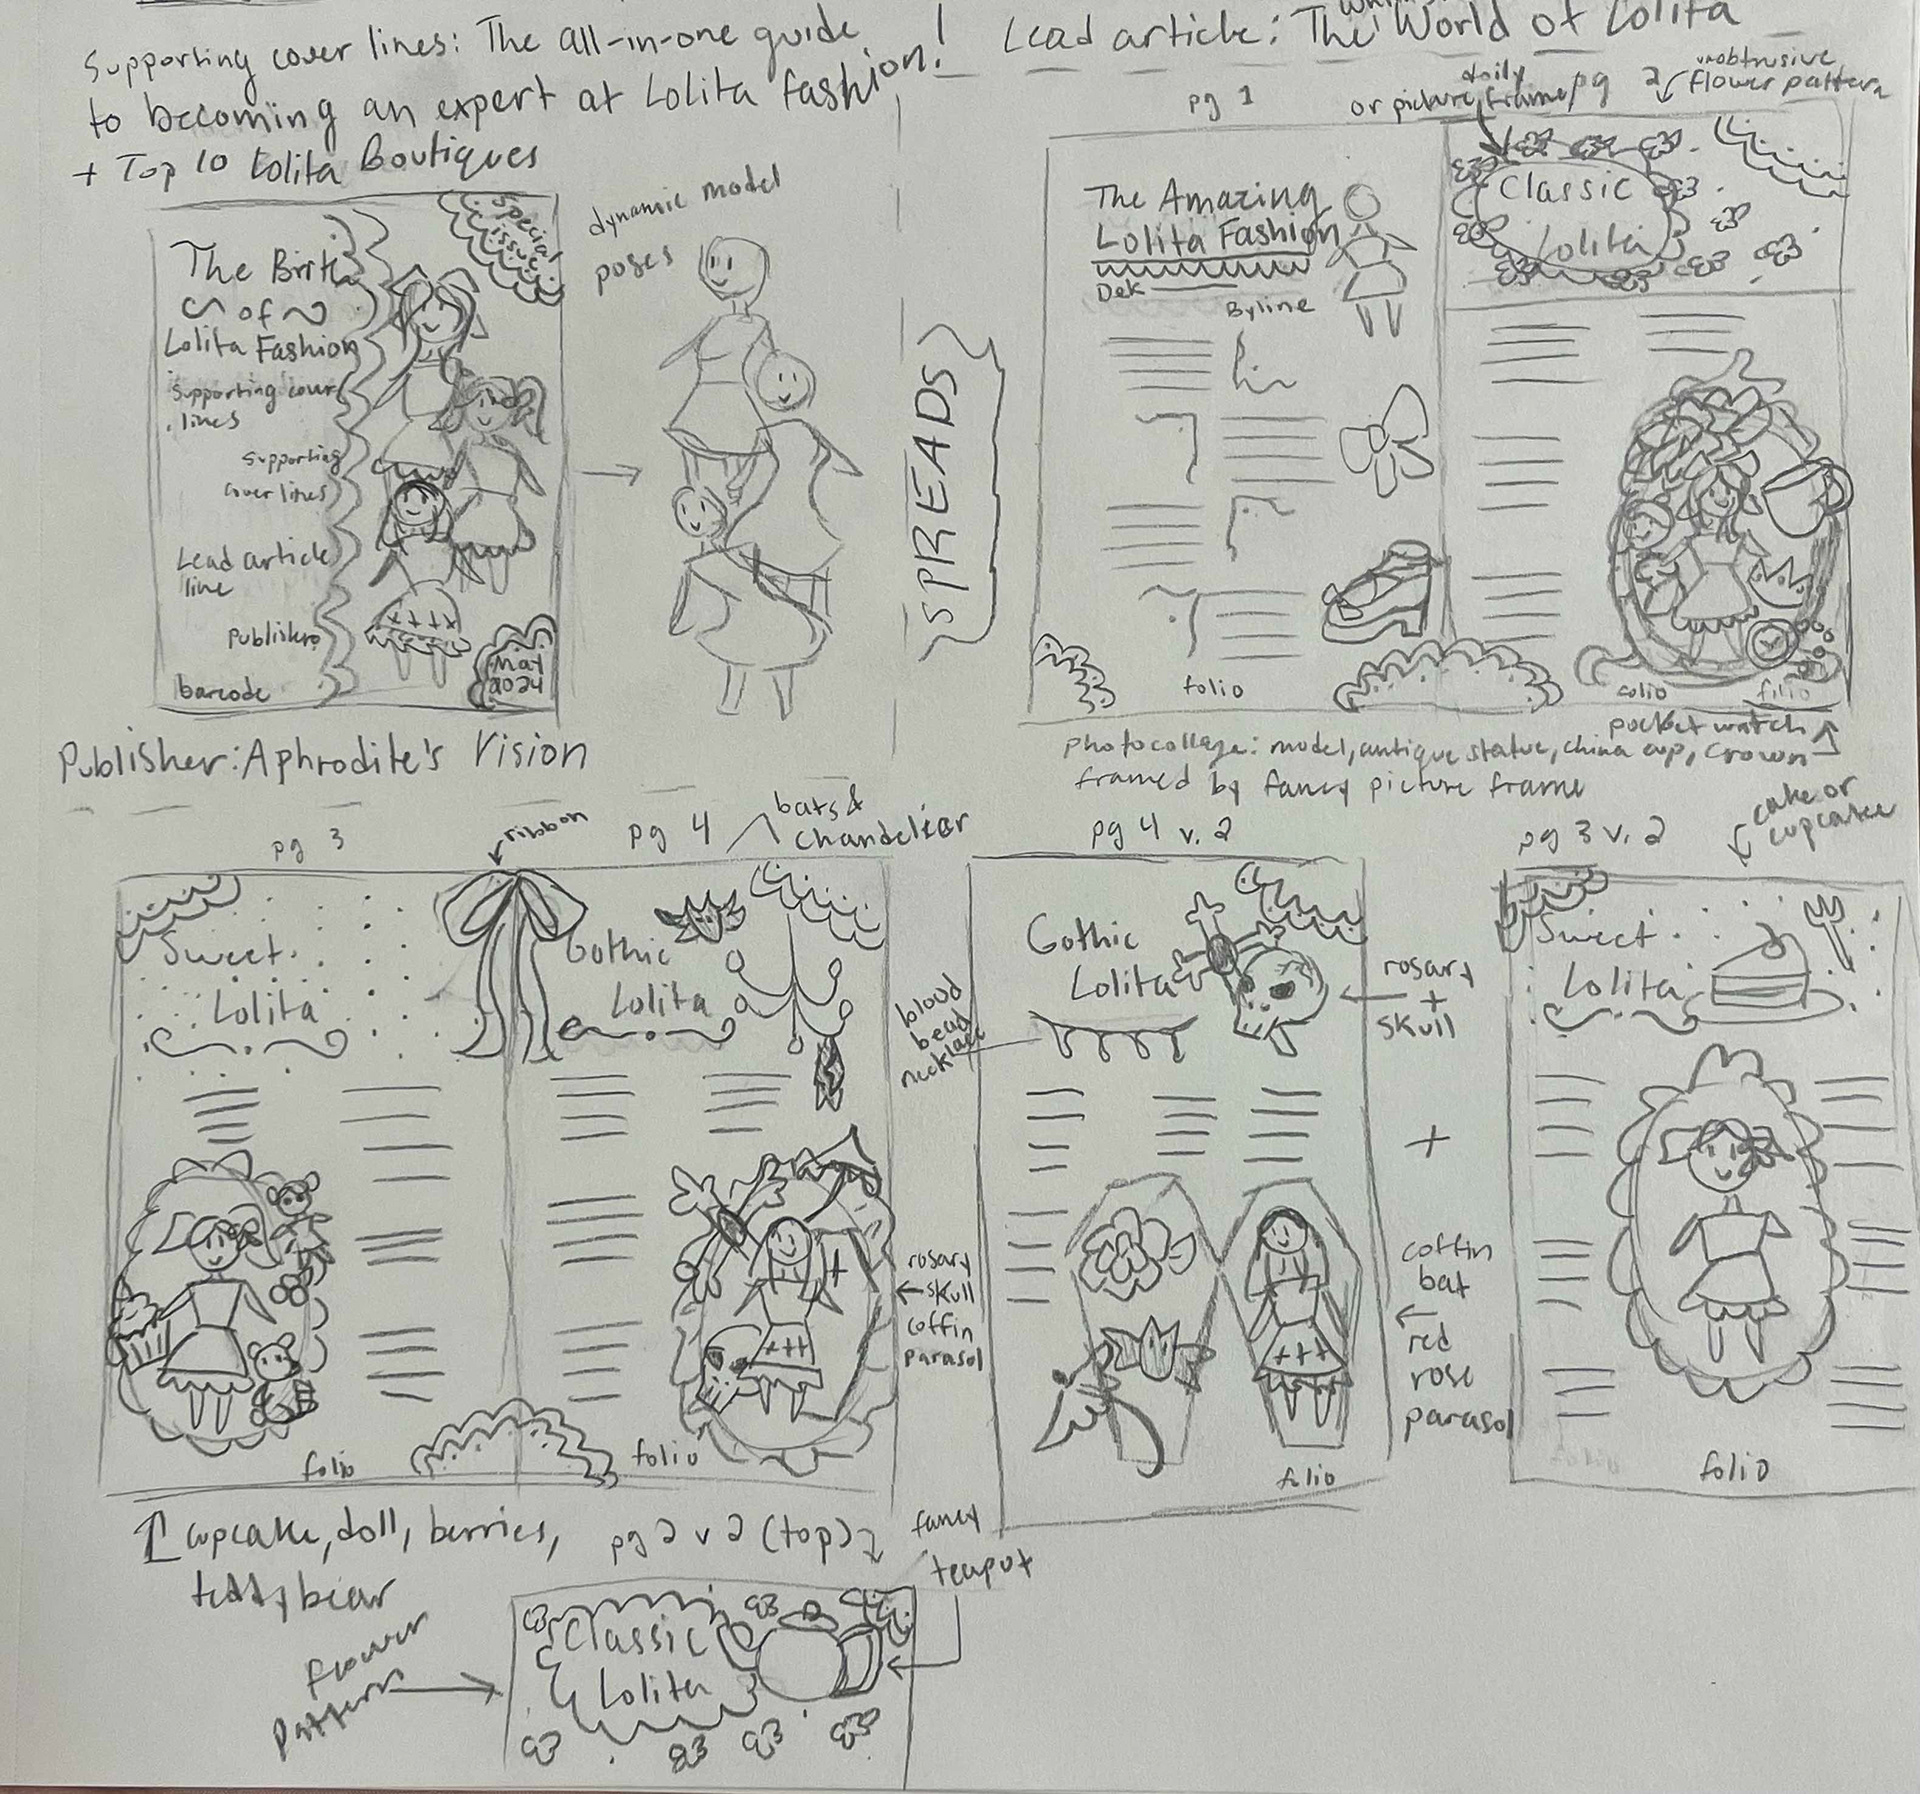 Supporting cover lines: The all-in-one guide
to becoming an expert at Lolita fashion!
+ Top 10 Lolita Boutiques
Lead article: The World of Lolita
The Birth
of
Lolita Fashion
Supporting cover
lines
Supporting
cover lines
Lead article
line
Publisher
barcode
Special
issue
May
2024
dynamic model
poses
Publisher: Aphrodite's Vision
SPREADS
pg 1
The Amazing
Lolita Fashion
Dek
Byline
folio
doily
or picture frame
pg 2
unobtrusive
flower pattern
Classic
Lolita
folio
folio
pocket watch
photocollage: model, antique statue, china cup, crown
framed by fancy picture frame
pg 3
ribbon
Sweet
Lolita
folio
pg 4
bats &
chandelier
Gothic
Lolita
folio
rosary
skull
coffin
parasol
cupcake, doll, berries,
teddy bear
pg 4 v. 2
Gothic
Lolita
blood
bead
necklace
rosary
+
skull
+
coffin
bat
red
rose
parasol
folio
pg 3 v. 2
cake or
cupcake
Sweet
Lolita
folio
pg 2 v 2 (top)
fancy
teapot
flower
pattern
Classic
Lolita